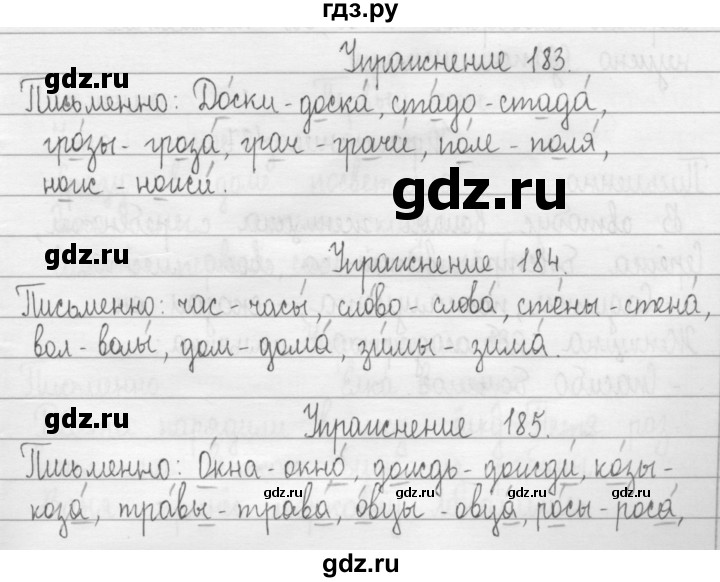 гдз.ру
Упражнение 183.
gdz.ru
Письменно: До́ски - доска́, ста́до - стада́,
гро́зы - гроза́, грач - грачи́, по́ле - поля́,
нож - ножи́.
gdz.ru
gdz.ru
Упражнение 184.
Письменно: час - часы́, сло́во - слова́, сте́ны - стена́,
вол - волы́, дом - дома́, зи́мы - зима́.
gdz.ru
Упражнение 185.
Письменно: О́кна - окно́, дождь - дожди́, ко́зы -
gdz.ru
gdz.ru
gdz.ru
коза́, тра́вы - трава́, о́вцы - овца́, ро́сы - роса́,
gdz.ru